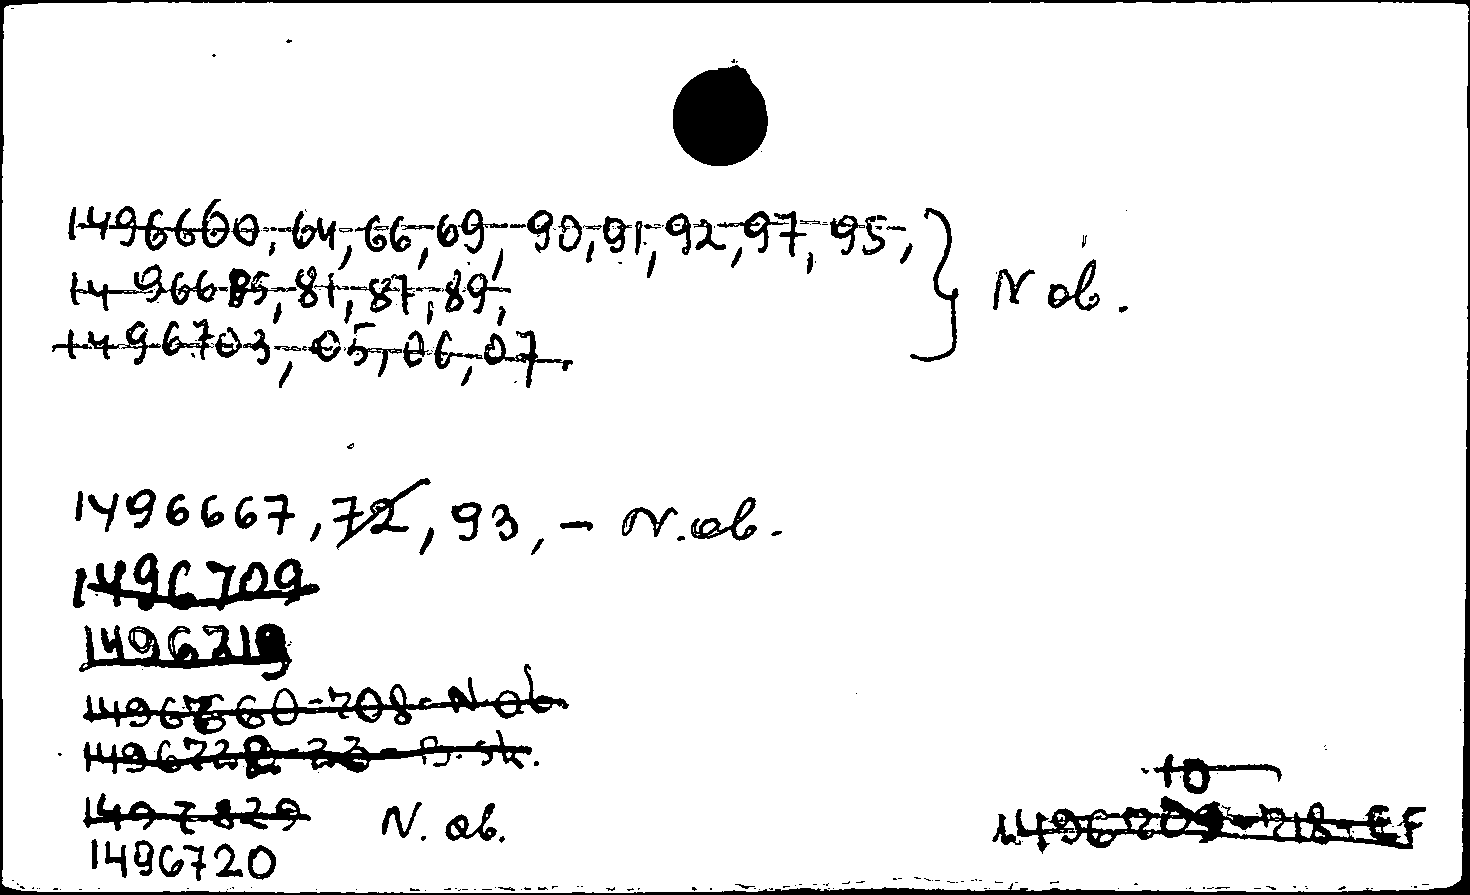 1496660, 64, 66, 69, 90, 91, 92, 97, 95,
14 96685, 81, 87, 89,
1496703, 05, 06, 07.
N ob.
1496667, 72, 93, - N.ob.
1496709
1496719
1496660-708-N ob
1496722-23-
1497829 N. ob.
1496720
10
1496709-718-EF